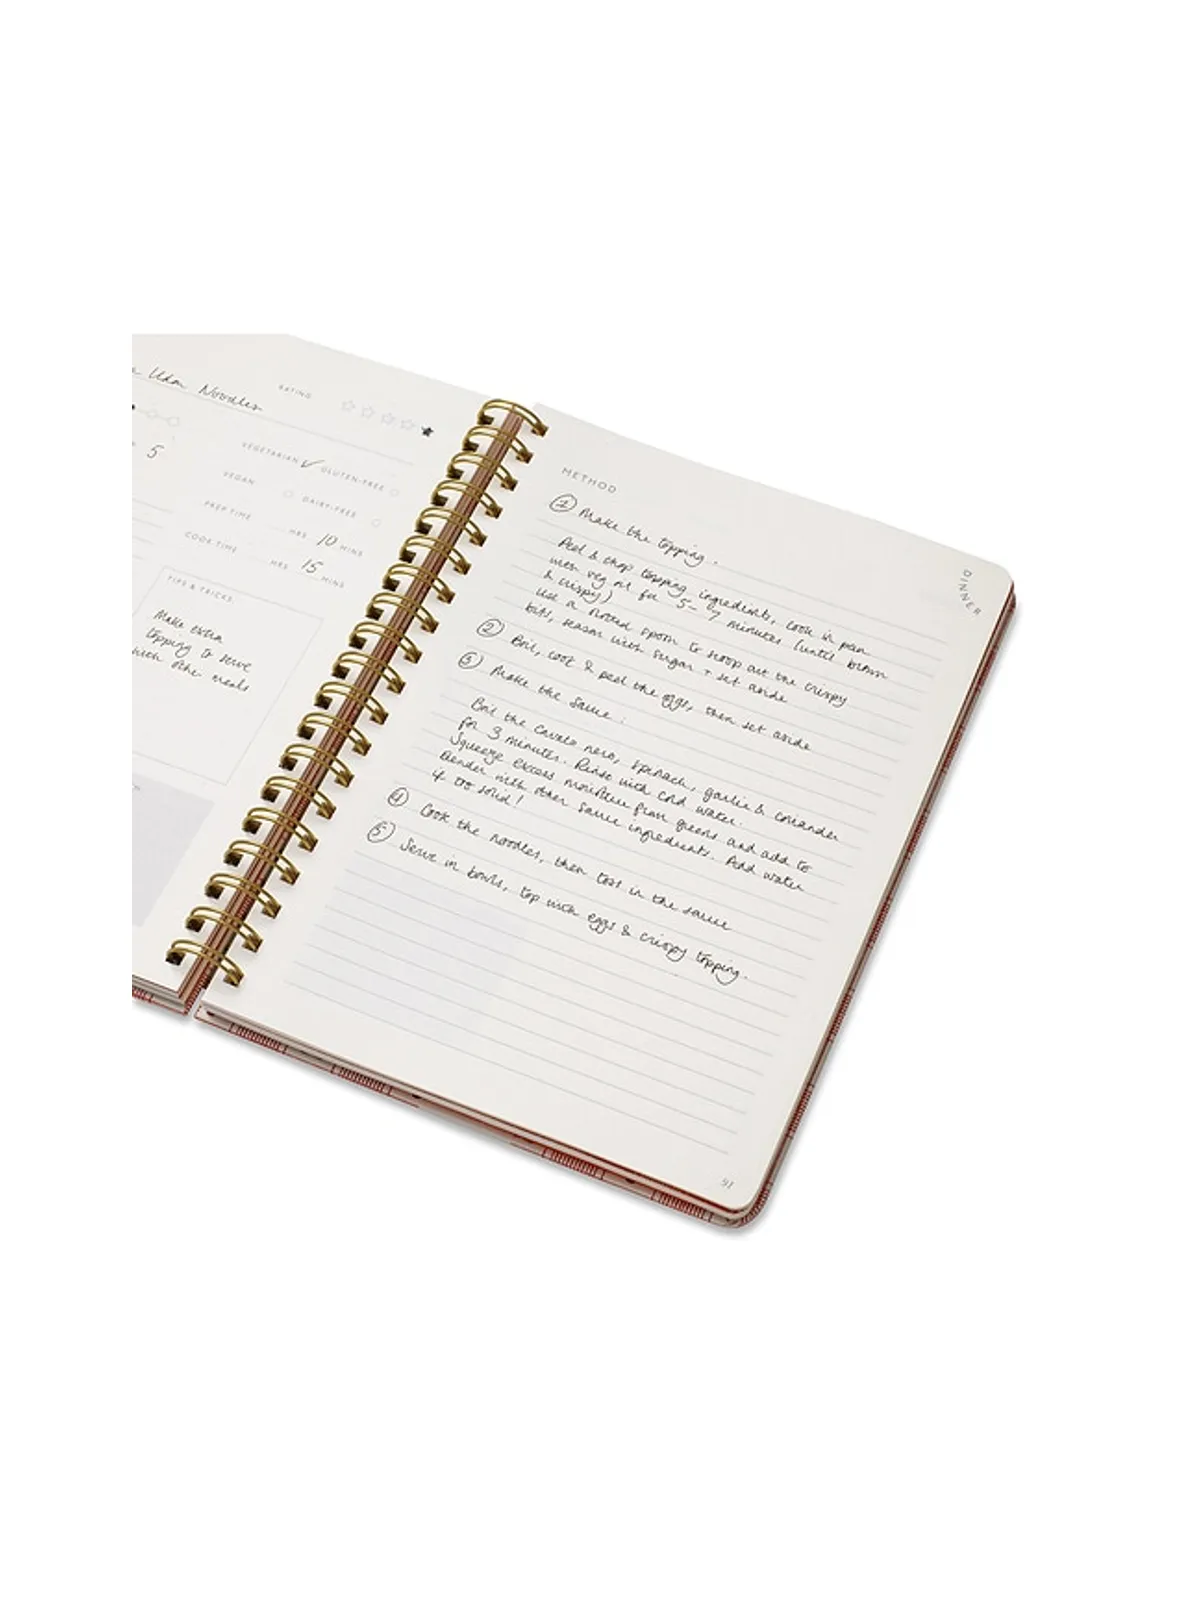 Udon Noodles
RATING
5
VEGETARIAN ✓ GLUTEN-FREE
VEGAN DAIRY-FREE
PREP TIME HRS 10 MINS
COOK TIME HRS 15 MINS
TIPS & TRICKS:
Make extra
topping to serve
with other meals
METHOD
DINNER
① Make the topping.
Peel & chop topping ingredients, cook in pan
with veg oil for 5-7 minutes (until brown
& crispy)
Use a slotted spoon to scoop out the crispy
bits, season with sugar + set aside
② Boil, cook & peel the eggs, then set aside
③ Make the sauce:
Boil the cavolo nero, spinach, garlic & coriander
for 3 minutes. Rinse with cold water.
Squeeze excess moisture from greens and add to
blender with other sauce ingredients. Add water
if too solid!
④ Cook the noodles, then toss in the sauce
⑤ Serve in bowls, top with eggs & crispy topping.
91